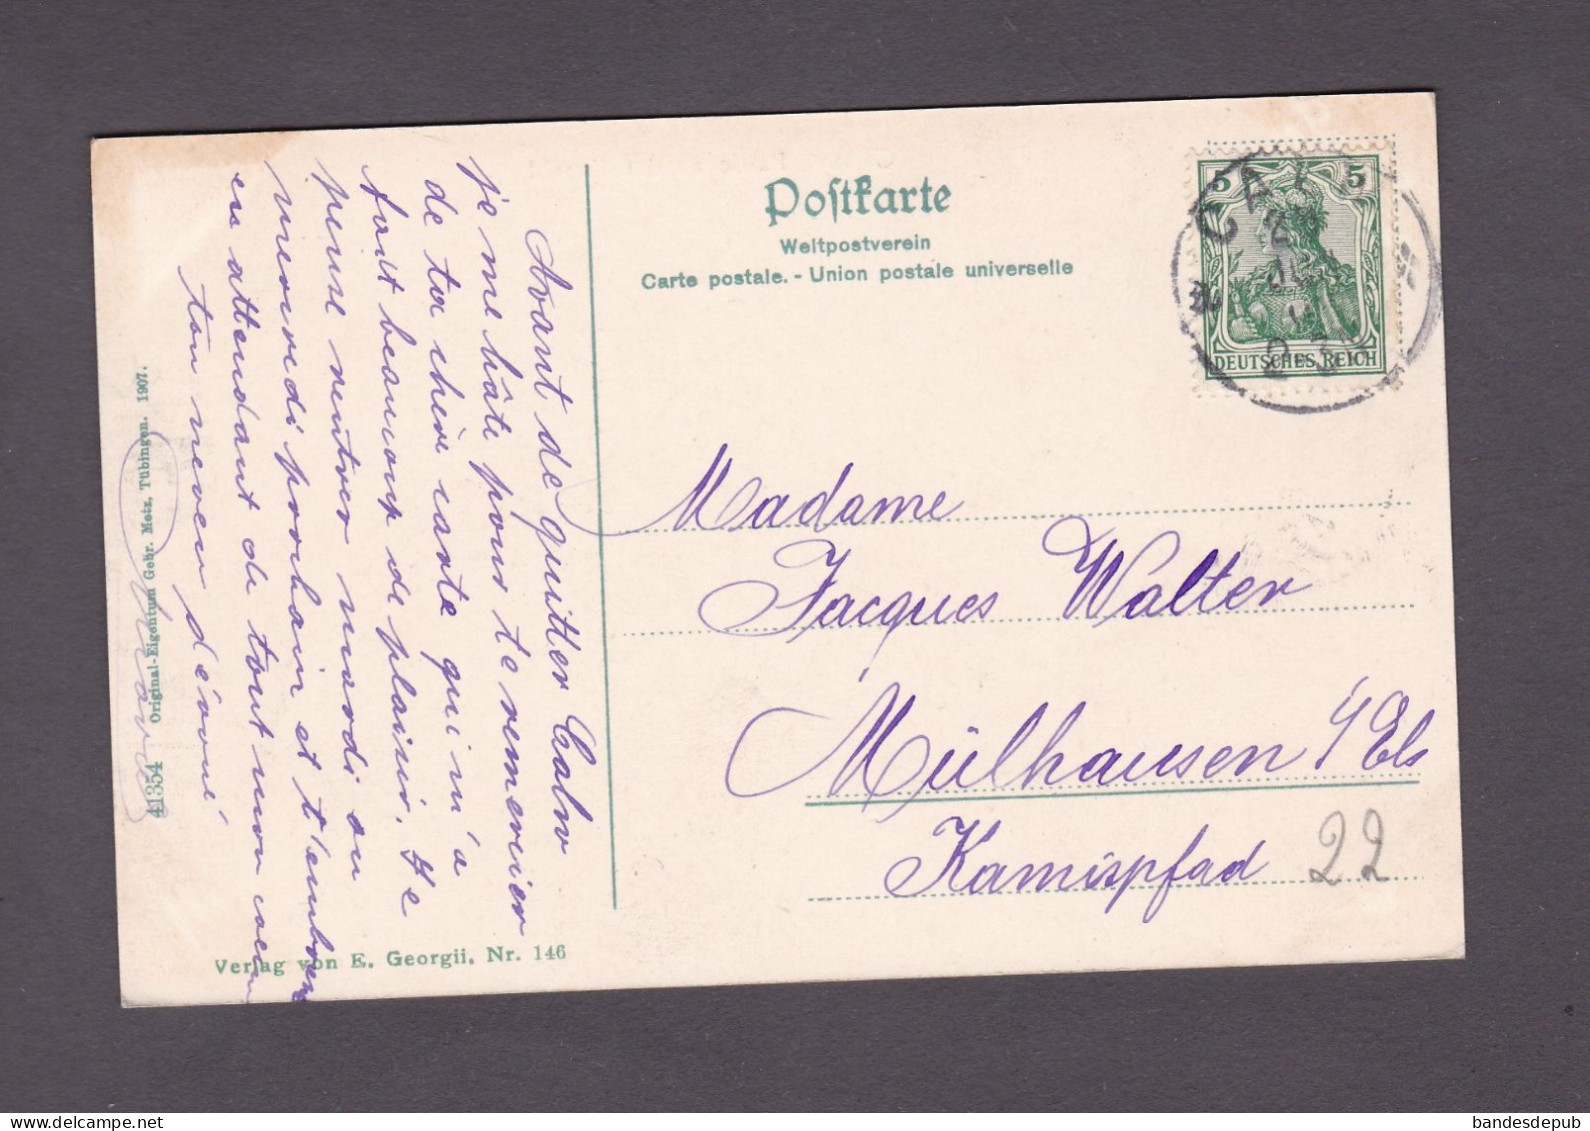 Postkarte
Weltpostverein
Carte postale. - Union postale universelle
5 5
DEUTSCHES REICH
CALW
Avant de quitter Calw
je me hâte pour te remercier
de ta chère carte qui m'a
fait beaucoup de plaisir. Je
pense rentrer mardi ou
mercredi prochain et t'embrasse
en attendant de tout mon cœur
ton neveu dévoué
Madame
Jacques Walter
Mülhausen i/Els
22
41354 Original-Eigentum Gebr. Metz, Tübingen. 1907.
Verlag von E. Georgii, Nr. 146
bandesdepub